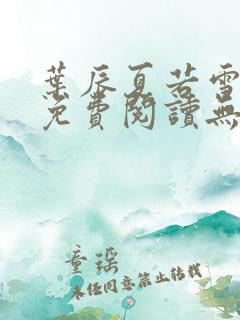 葉辰夏若雪
免費閱讀無
童瑶
未经同意禁止转载